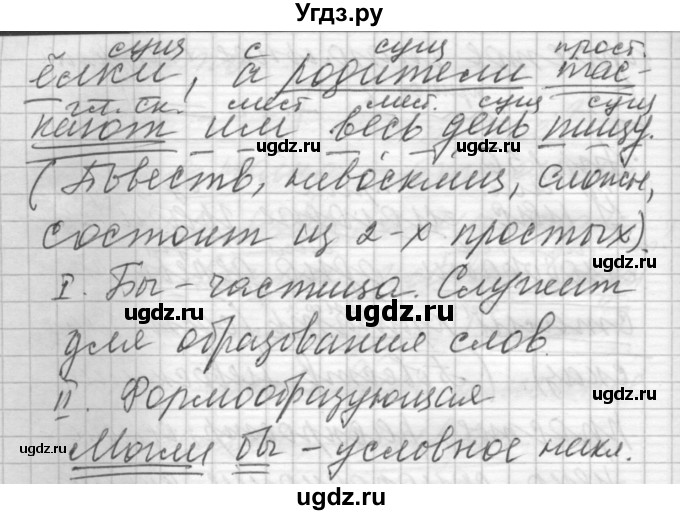 Угдз.ру
сущ с сущ прост.
ёлки, а родители тас-
гл. ск. мест мест. сущ сущ
кают им весь день пищу.
ugdz.ru ugdz.ru
(Повеств, невосклиц, сложн,
ugdz.ru
состоит из 2-х простых).
I. Бы - частица. Служит
ugdz.ru ugdz.ru ugdz.ru
для образования слов.
ugdz.ru
II. Формообразующая
ugdz.ru ugdz.ru
Могли бы - условное накл.
ugdz.ru
ugdz.ru